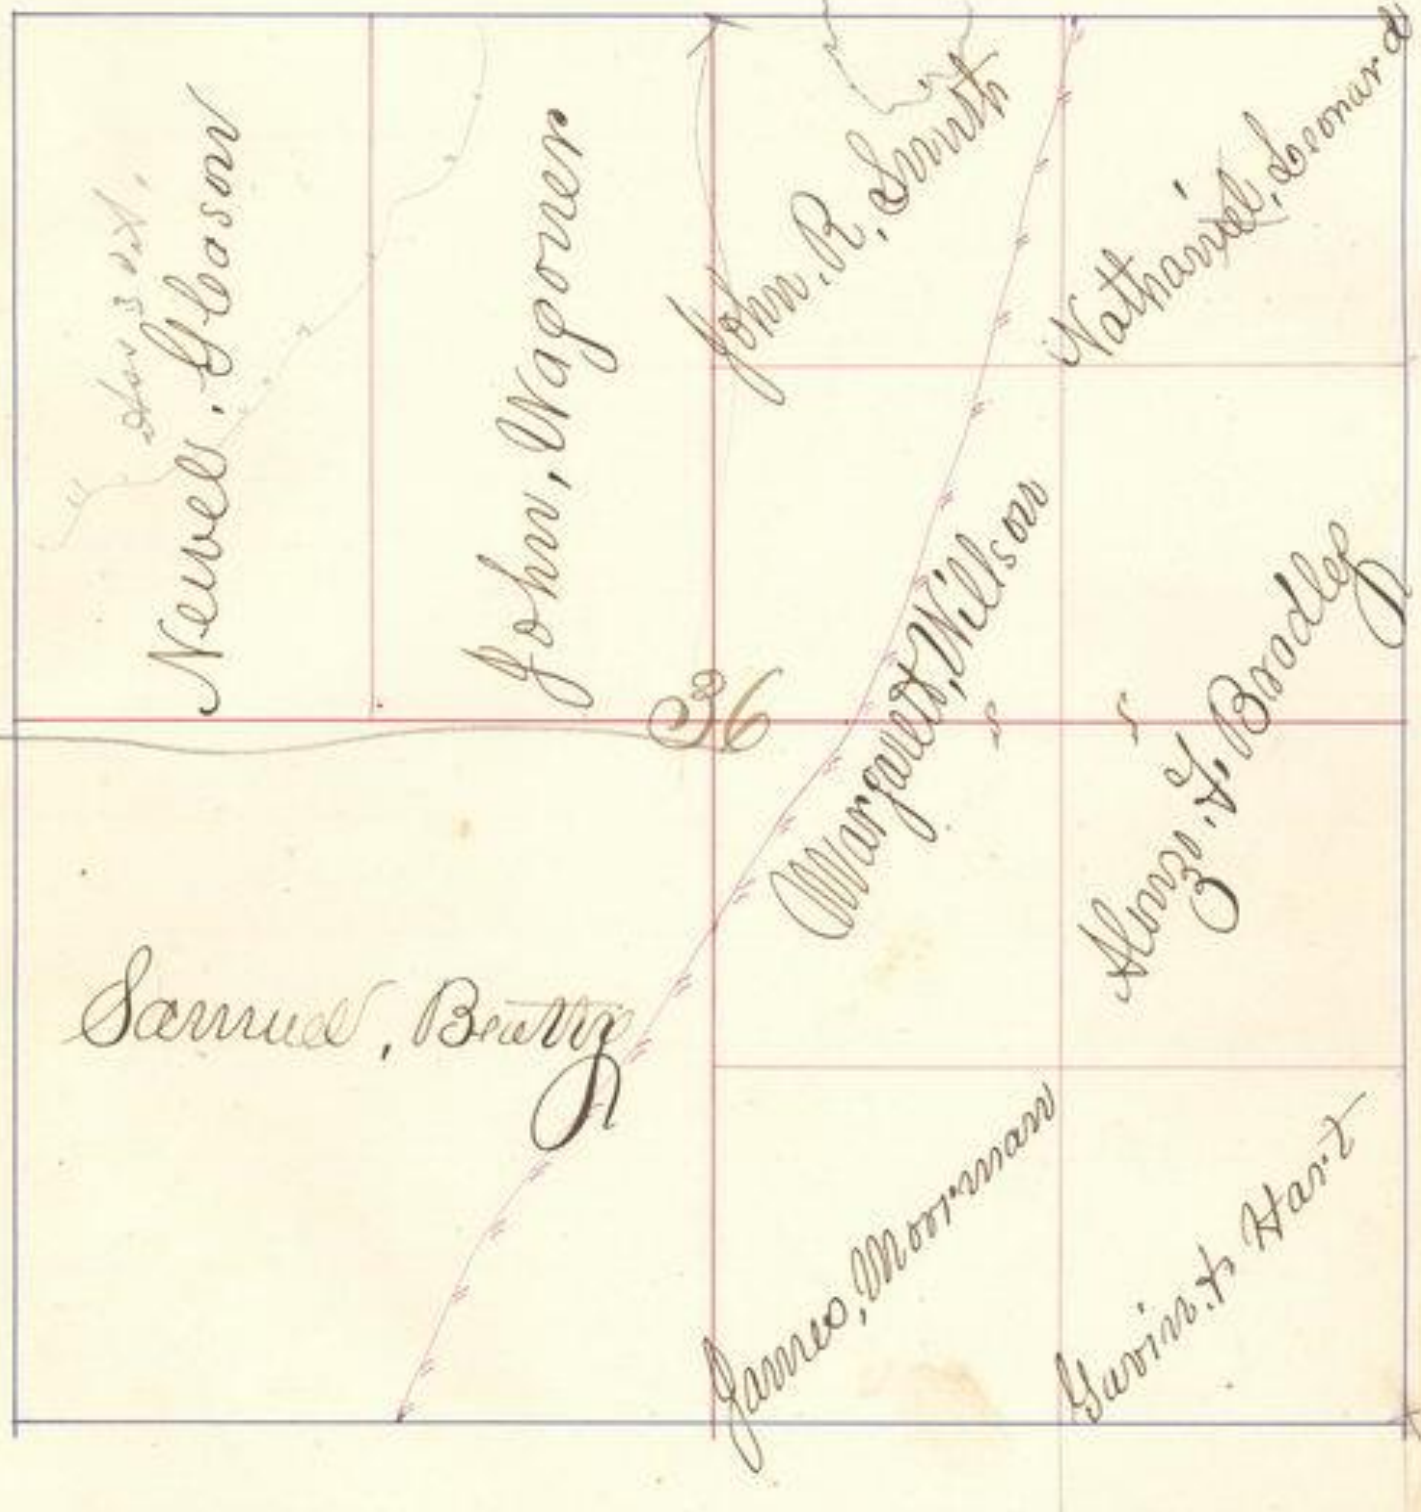 Newell, Gleason
John, Wagoner
John, R, Smith
Nathaniel, Leonard
36
Margarett, Willson
s s
Alonzo, F, Bradley
Samuel, Beatty
James, Moorman
Gavin, & Hart